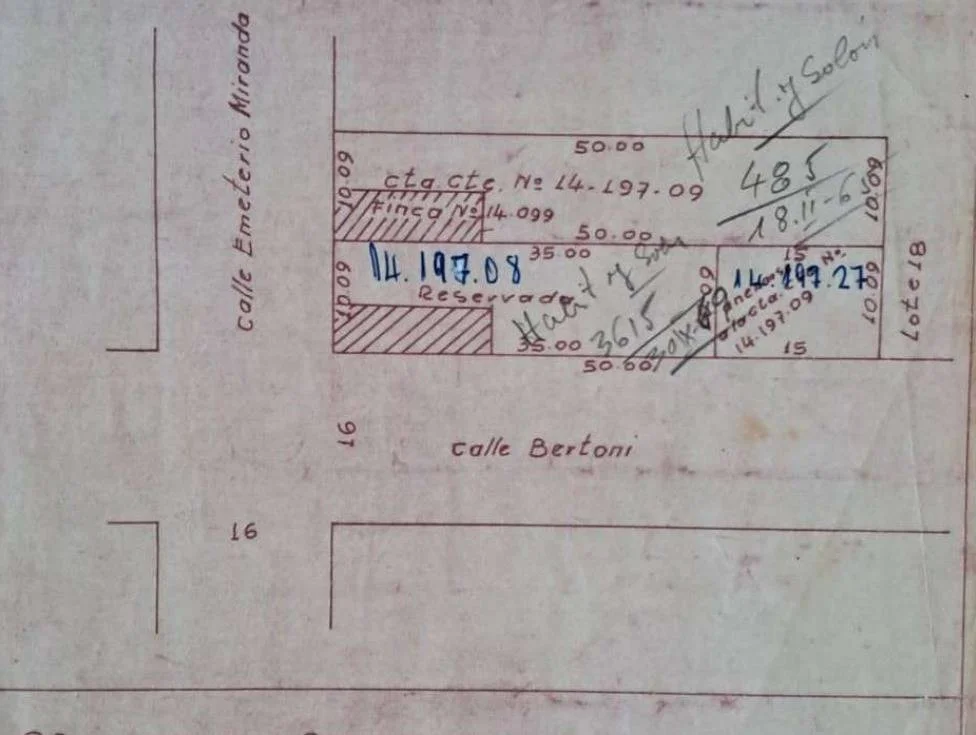 Calle Emeterio Miranda
Habit. y Solón
50.00
10.09
cta. cte. Nº 14-197.09
485
10.09
Finca Nº 14.099
18.11-6
50.00
35.00
15
14.197.08
14.197.27
10.09
Reservada
Habit y
3615
anexo
Nº
a la cta.
14.197.09
10.09
Lote 18
35.00
15
50.00
16
Calle Bertoni
16